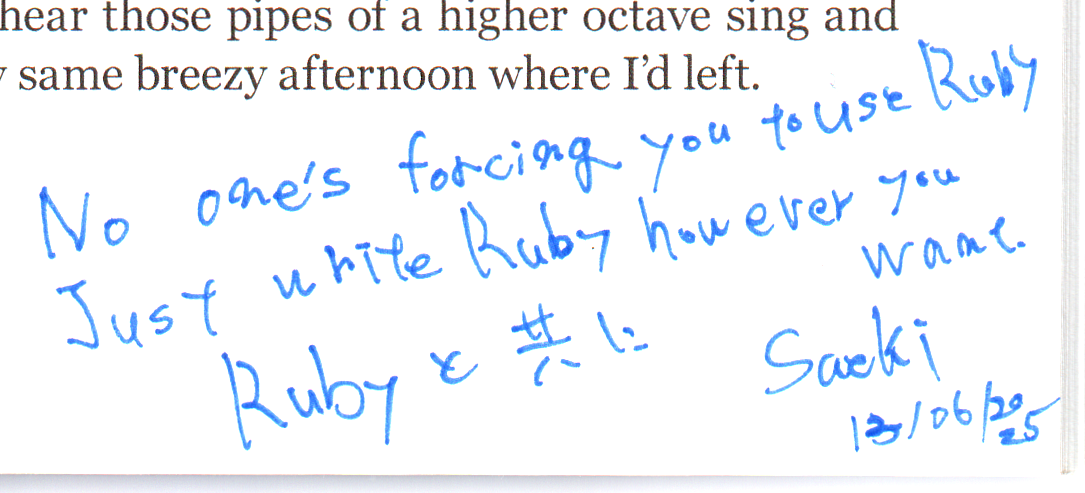 hear those pipes of a higher octave sing and
same breezy afternoon where I'd left.
No one's forcing you to use Ruby
Just write Ruby however you
want.
Ruby と共に
Saeki
13/06/2025